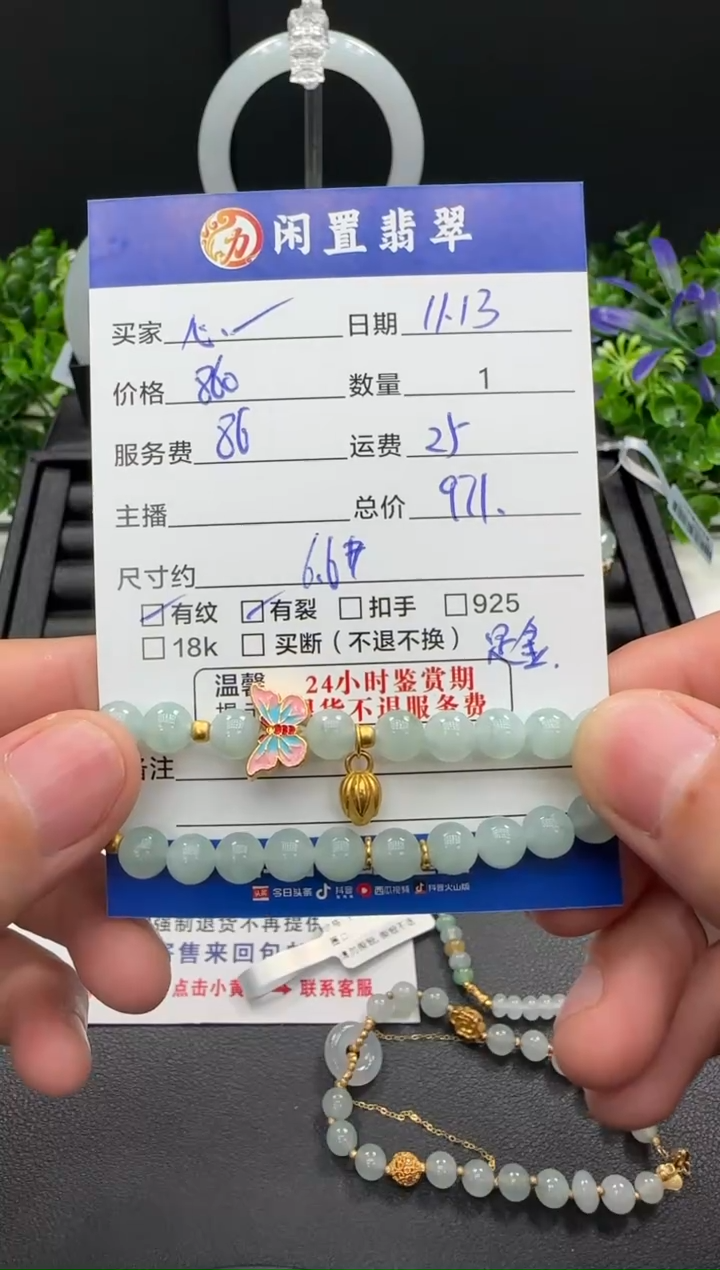 力 闲置翡翠
买家 心. 日期 11.13
价格 860 数量 1
服务费 86 运费 25
主播 总价 971.
尺寸约 6.6#
有纹 有裂 扣手 925
18k 买断（不退不换） 足金.
温馨 24小时鉴赏期
货不退服务费
备注
头条 今日头条 抖音 西瓜视频 抖音火山版
强制退货不再提供
寄售来回包
点击小黄 联系客服